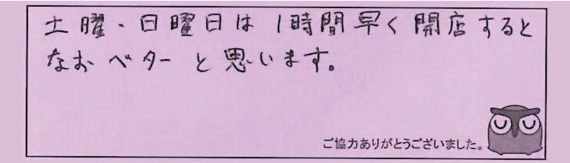 土曜・日曜日は1時間早く開店すると
なおベターと思います。
ご協力ありがとうございました。